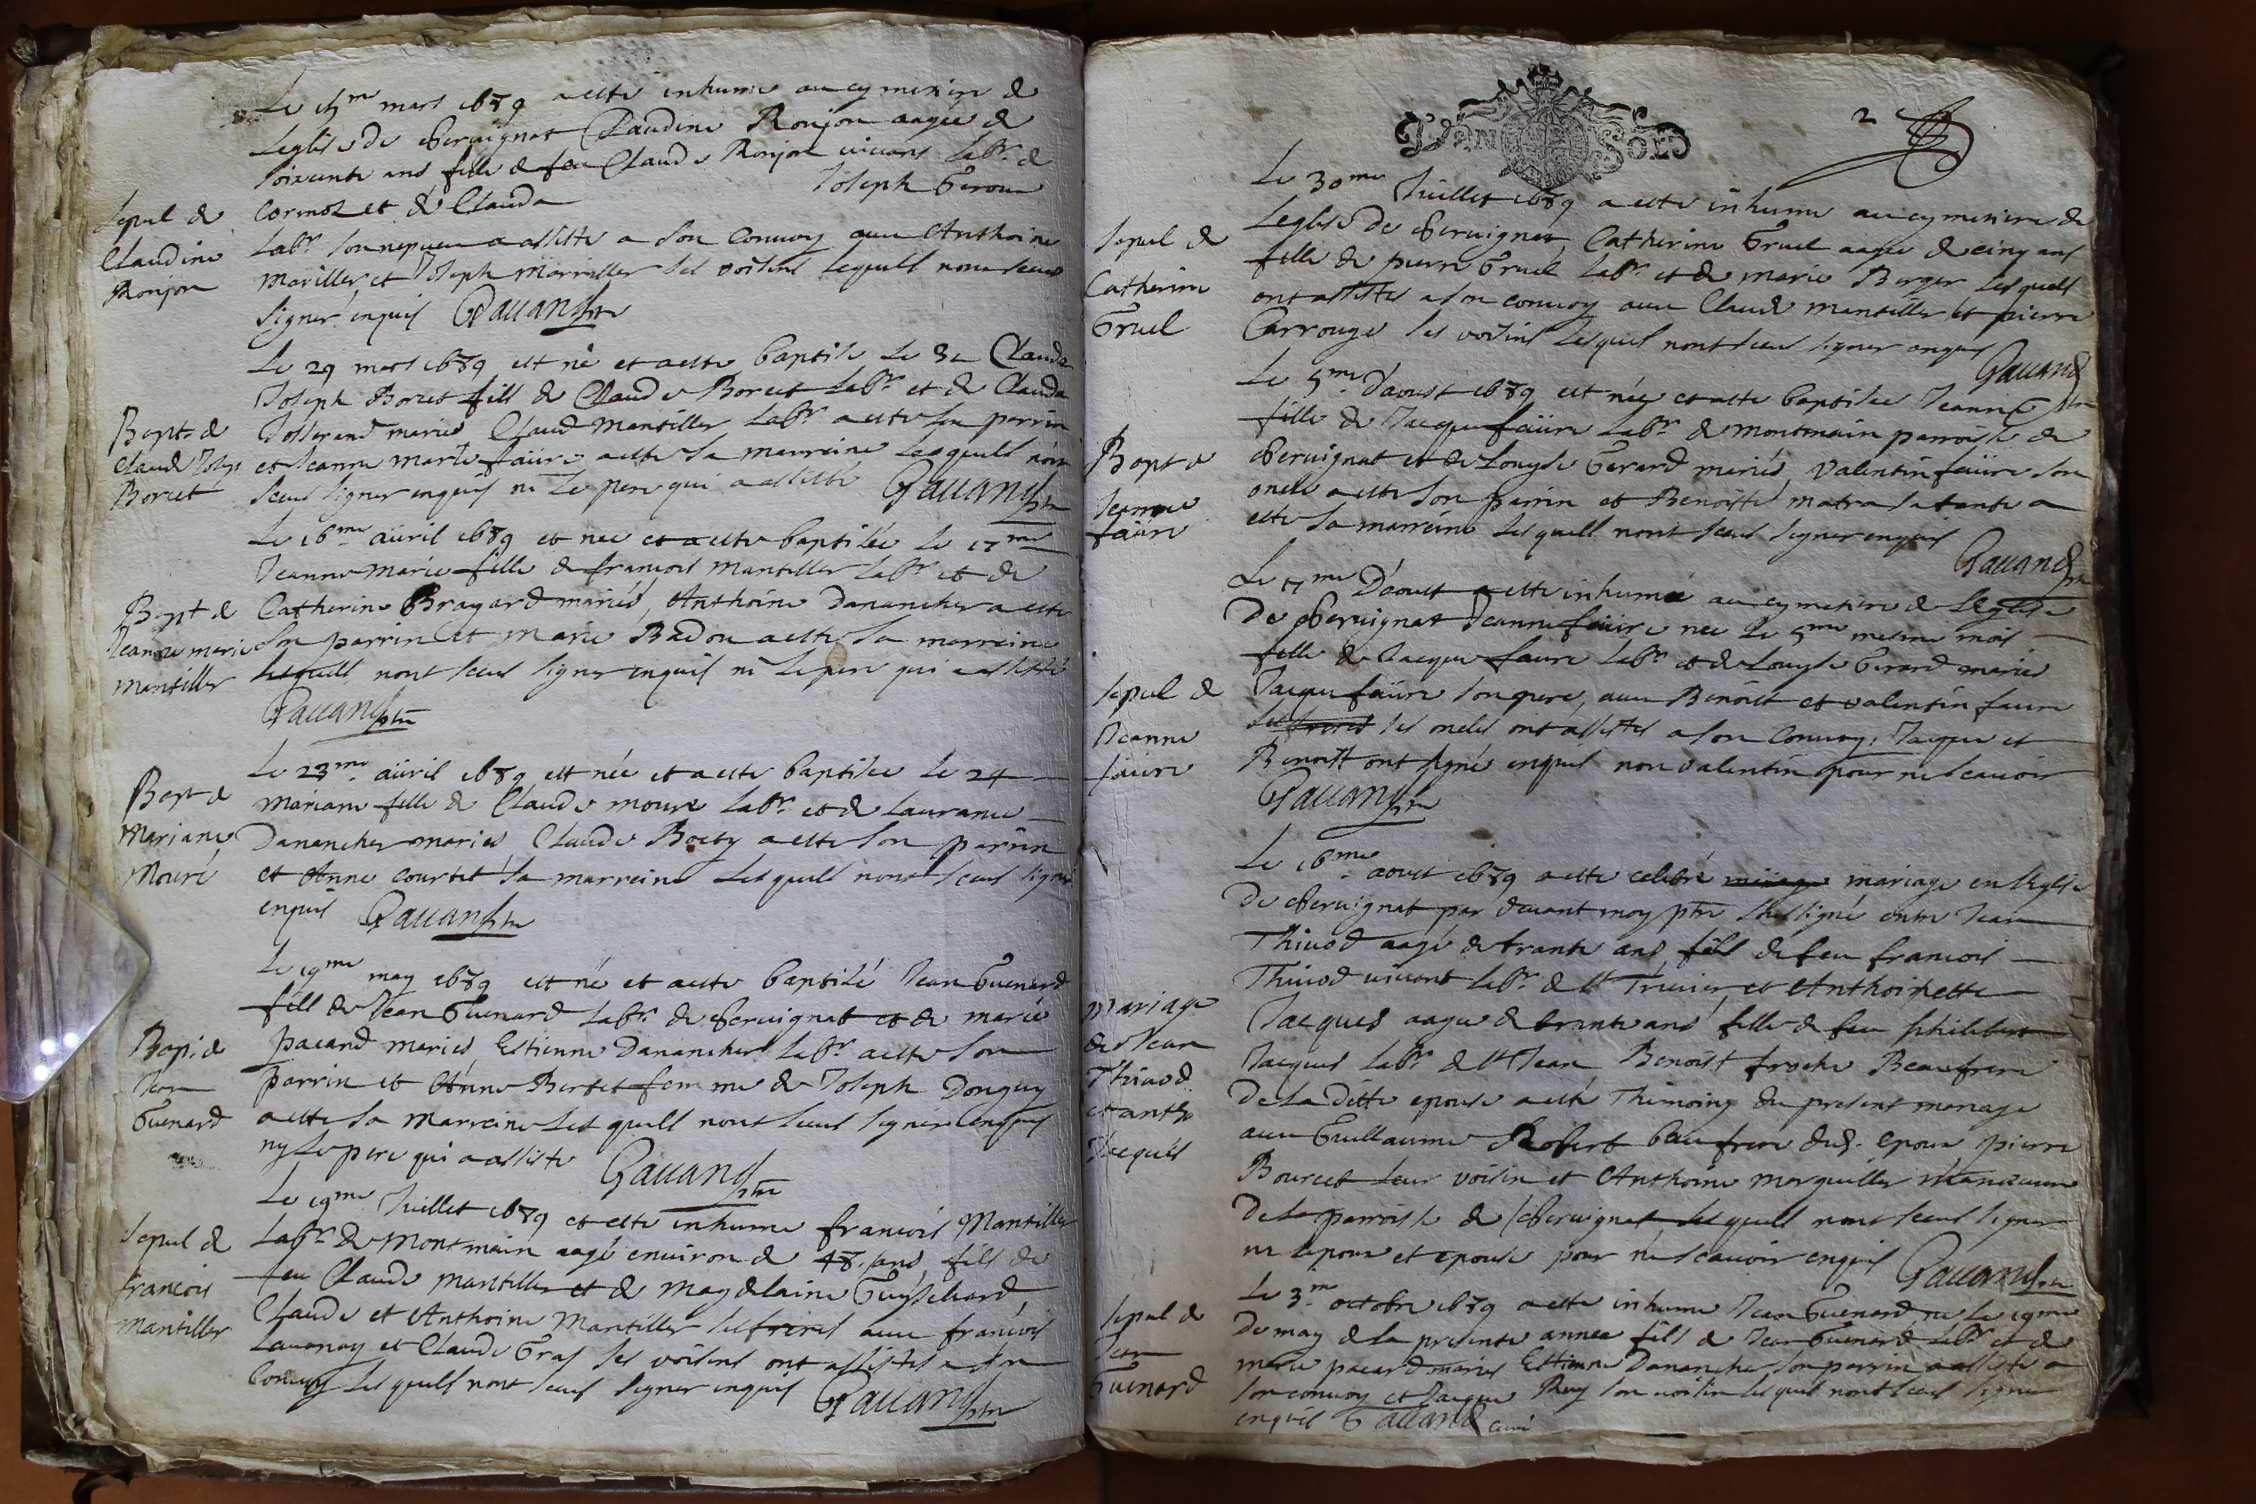 Le 15me mars 1689 a esté inhumé au cymetiere de
Leglise de Chevignat Claudine Ronjon aagée de
soixante ans fille de feu Claude Ronjon vivant Labr. de
Cormoz et de Clauda Joseph Geroux
Sepul de
Claudine
Ronjon
Labr. son nepveu a assisté a son convoy avec Anthoine
Mariller et Joseph Mariller ses voisins lesquels nont sceus
signer enquis Gavand ptre
Le 29 mars 1689 est né et a esté baptisé le 31
Joseph Borcet fils de Claude Borcet Labr. et de Clauda
Bapt. de
Claude Joseph
Borcet
Josserand mariés Claude Mantiller Labr. a esté son parrin
et Jeanne Marie faüre a esté sa marreine lesquels nont
sceus signer enquis ni le pere qui a assisté Gavand ptre
Le 16me aüril 1689 est née et a esté baptisée le 17me
Jeanne Marie fille de françois Mantiller Labr. et de
Bapt de
Jeanne marie
Mantiller
Catherine Brayard mariés, Anthoine Danancher a esté
son parrin et Marie Badou a esté sa marreine
lesquels nont sceus signer enquis ni le pere qui a assisté
Gavand ptre
Le 23me aüril 1689 est née et a esté baptisée le 24
Bapt de
Mariane
Mouré
Mariane fille de Claude Moure Labr. et de Laurance
Danancher mariés Claude Boety a esté son parrin
et Anne Courtet sa marreine lesquels nont sceus signer
enquis Gavand ptre
Le 19me may 1689 est né et a esté baptisé Jean Guenard
fils de Jean Guenard Labr. de Chevignat et de Marie
Bapt. de
Jean
Guenard
pacand mariés Estienne Danancher Labr. a esté son
parrin et Anne Bertet femme de Joseph Donguy
a esté sa Marreine lesquels nont sceus signer enquis
ny le pere qui a assisté Gavand ptre
Le 19me Juillet 1689 et esté inhumé françois Mantiller
Sepul de
francois
Mantiller
Labr. de Montmain aagé environ de 48. ans fils de
feu Claude Mantiller et de Magdelaine
Claude et Anthoine Mantiller ses freres avec françois
Lavenay et Claude Gras ses voisins ont assistés a son
convoy lesquels nont sceus signer enquis Gavand ptre
2
SOL
Le 30me Juillet 1689 a esté inhumé au cymetiere de
Sepul de
Catherine
Gruel
Leglise de Chevignat, Catherine Gruel aagée de cinq ans
fille de pierre Gruel Labr. et de marie Berger lesquels
ont assistés a son convoy avec Claude Mantiller et pierre
Carrouge ses voisins lesquels nont sceus signer enquis
Gavand ptre
Le 5me D'aoust 1689 est née et a esté baptisée Jeanne
fille de Jacque faüre Labr. de Montmain parroisse de
Bapt de
Jeanne
faüre
Chevignat et de Louyse Gerard mariés, Valentin faüre son
oncle a esté son parrin et Benoiste Matra sa tante a
esté sa marreine lesquels nont sceus signer enquis
Gavand ptre
Le 7me D'aoust a esté inhumée au cymetiere de Léglise
De Chevignat Jeanne faüre née le 5me mesme mois
fille de Jacque faure Labr. et de Louyse Gerard mariés
Sepul de
Jeanne
faure
Jacque faüre son pere, avec Benoist et Valentin faure
ses freres ses oncles ont assistés a son convoy, Jacque et
Benoist ont signé enquis non Valentin pour ne scavoir
Gavand ptre
Le 16me aoust 1689 a esté celebré mariage en Leglise
De Chevignat par devant moy ptre soussigné entre Jean
Thivod aagé de trante ans fils de feu francois
Thivod vivant Labr. de St Trivier et Anthoinette
Mariage
de Jean
Thivod
et anth
Jacques
Jacques aagée de trente ans fille de feu philibert
Jacques Labr. de St Jean Benoist Beaufrere
De La Ditte epouse a esté Thémoing du present mariage
avec Guillaume Robert beaufrere dud. epoux pierre
Bourcet leur voisin et Anthoine Marguiller
De La parroisse de Chevignat lesquels nont sceus signer
ni lepoux et epouse pour ne scavoir enquis Gavand ptre
Le 3me octobre 1689 a esté inhumé Jean Guenard né le 19me
Sepul de
Jean
Guenard
De may de la presente année fils de Jean Guenard Labr. et de
Marie pacard mariés Estienne Danancher son parrin a assisté a
son convoy et Jacque Ruy son voisin lesquels nont sceus signer
enquis Gavand curé